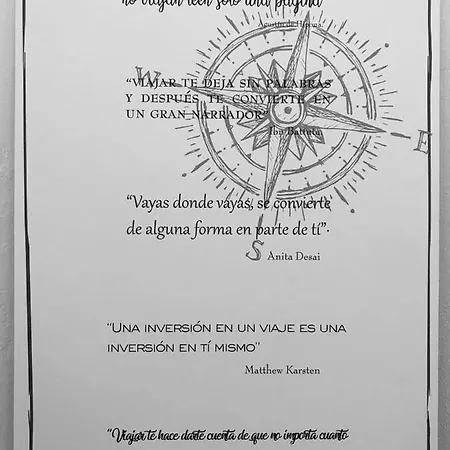 no viajan leen solo una página
Agustín de Hipona
W
"VIAJAR TE DEJA SIN PALABRAS
Y DESPUÉS TE CONVIERTE EN
UN GRAN NARRADOR"
Ibn Battuta
E
"Vayas donde vayas, se convierte
de alguna forma en parte de tí".
S
Anita Desai
"UNA INVERSIÓN EN UN VIAJE ES UNA
INVERSIÓN EN TÍ MISMO"
Matthew Karsten
"Viajar te hace darte cuenta de que no importa cuanto